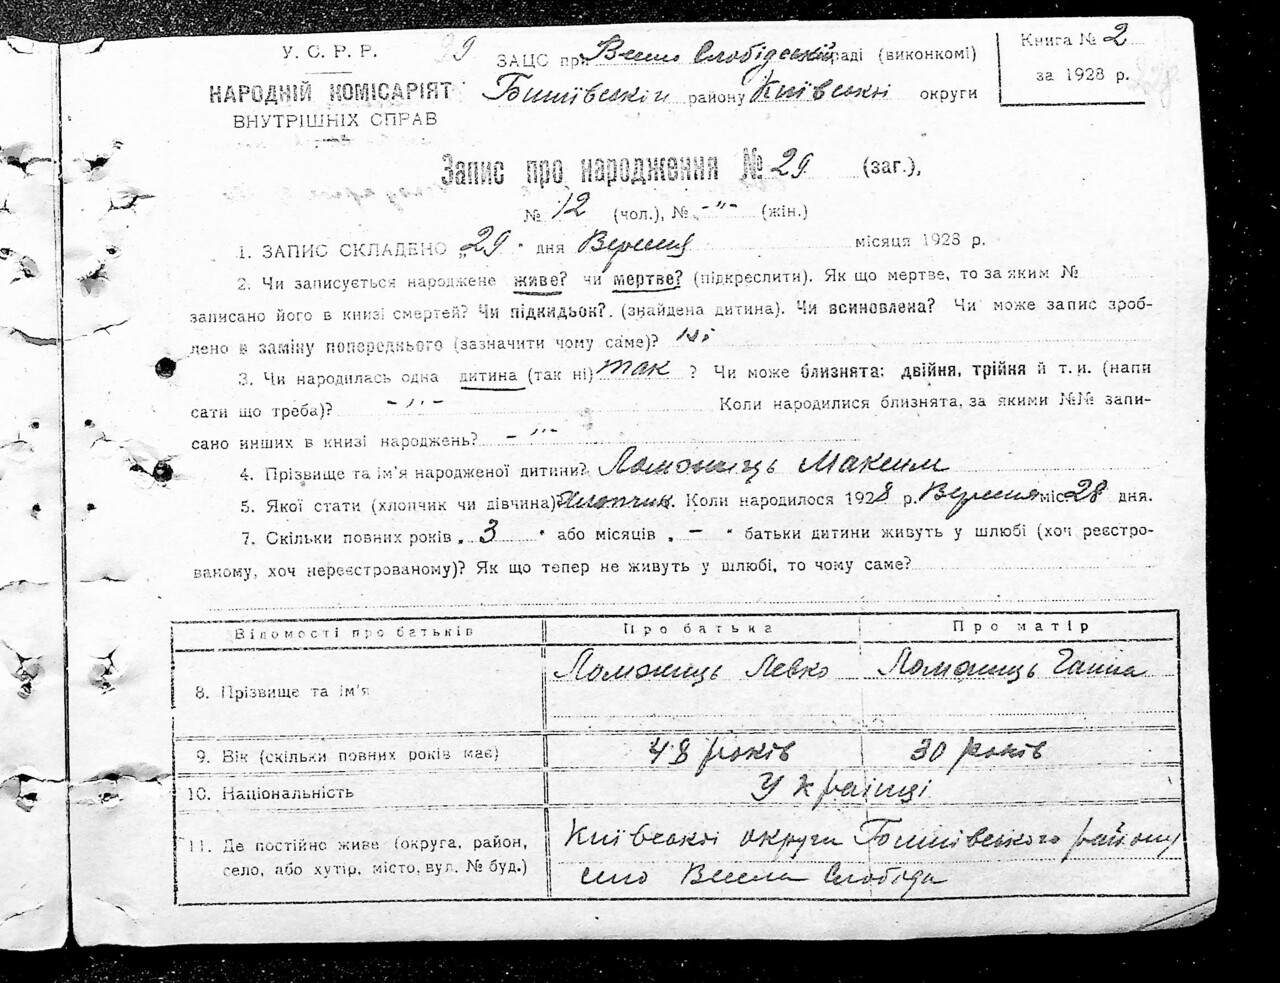 У. С. Р. Р.
НАРОДНІЙ КОМІСАРІЯТ
ВНУТРІШНІХ СПРАВ
29
ЗАЦС при Весело Слобідській раді (виконкомі)
району Київської округи
Книга № 2
за 1928 р.
Запис про народження № 29 (заг.),
№ 12 (чол.), № -"- (жін.)
1. ЗАПИС СКЛАДЕНО „29" дня Вересня місяця 1928 р.
2. Чи записується народжене живе? чи мертве? (підкреслити). Як що мертве, то за яким №
записано його в книзі смертей? Чи підкидьок?. (знайдена дитина). Чи всиновлена? Чи може запис зроб-
лено в заміну попереднього (зазначити чому саме)? Ні
3. Чи народилась одна дитина (так ні) так ? Чи може близнята: двійня, трійня й т. и. (напи
сати що треба)? -"- Коли народилися близнята, за якими №№ запи-
сано инших в книзі народжень? -"-
4. Прізвище та ім'я народженої дитини? Ломониць Максим
5. Якої стати (хлопчик чи дівчина) Хлопчик. Коли народилося 1928 р. Вересня міс 28 дня.
7. Скільки повних років „ 3 " або місяців „ – " батьки дитини живуть у шлюбі (хоч реєстро-
ваному, хоч нереєстрованому)? Як що тепер не живуть у шлюбі, то чому саме?
Відомості про батьків Про батька Про матір
8. Прізвище та ім'я Ломониць Левко Ломониць Ганна
9. Вік (скільки повних років має) 48 років 30 років
10. Національність Українці
11. Де постійно живе (округа, район, Київської округи району
село, або хутір, місто, вул. № буд.) село Весела Слобода